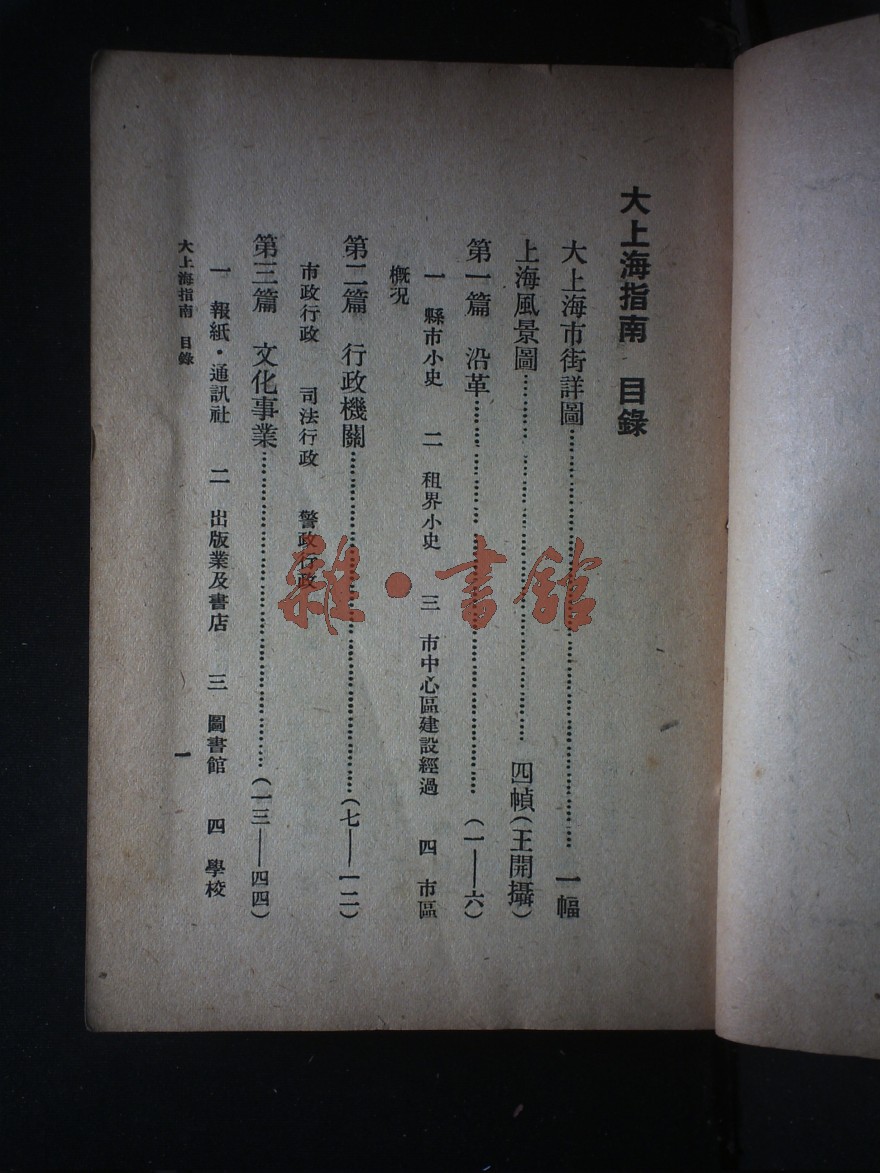 大上海指南　目錄
大上海市街詳圖……………………一幅
上海風景圖……………………四幀(王開攝)
第一篇　沿革……………………(一——六)
一　縣市小史　二　租界小史　三　市中心區建設經過　四　市區
概況
第二篇　行政機關……………………(七——一二)
市政行政　司法行政　警政行政
第三篇　文化事業……………………(一三——四四)
一　報紙·通訊社　二　出版業及書店　三　圖書館　四　學校
大上海指南　目錄　一
雜·書館